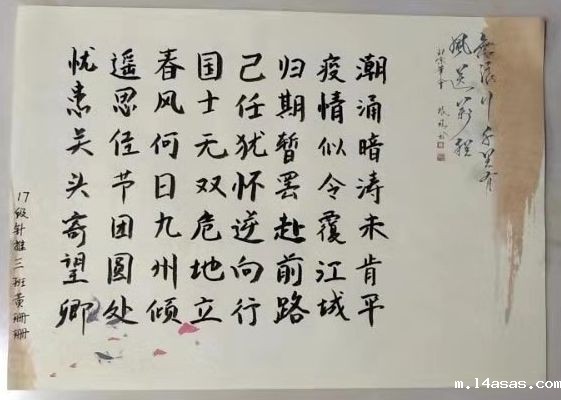 风送万程
潮涌暗涛未肯平
疫情似令覆江城
归期暂罢赴前路
己任犹怀逆向行
国士无双危地立
春风何日九州倾
遥思佳节团圆处
忧患关头寄望卿
17级针推三班黄珊珊
m.14asas.com